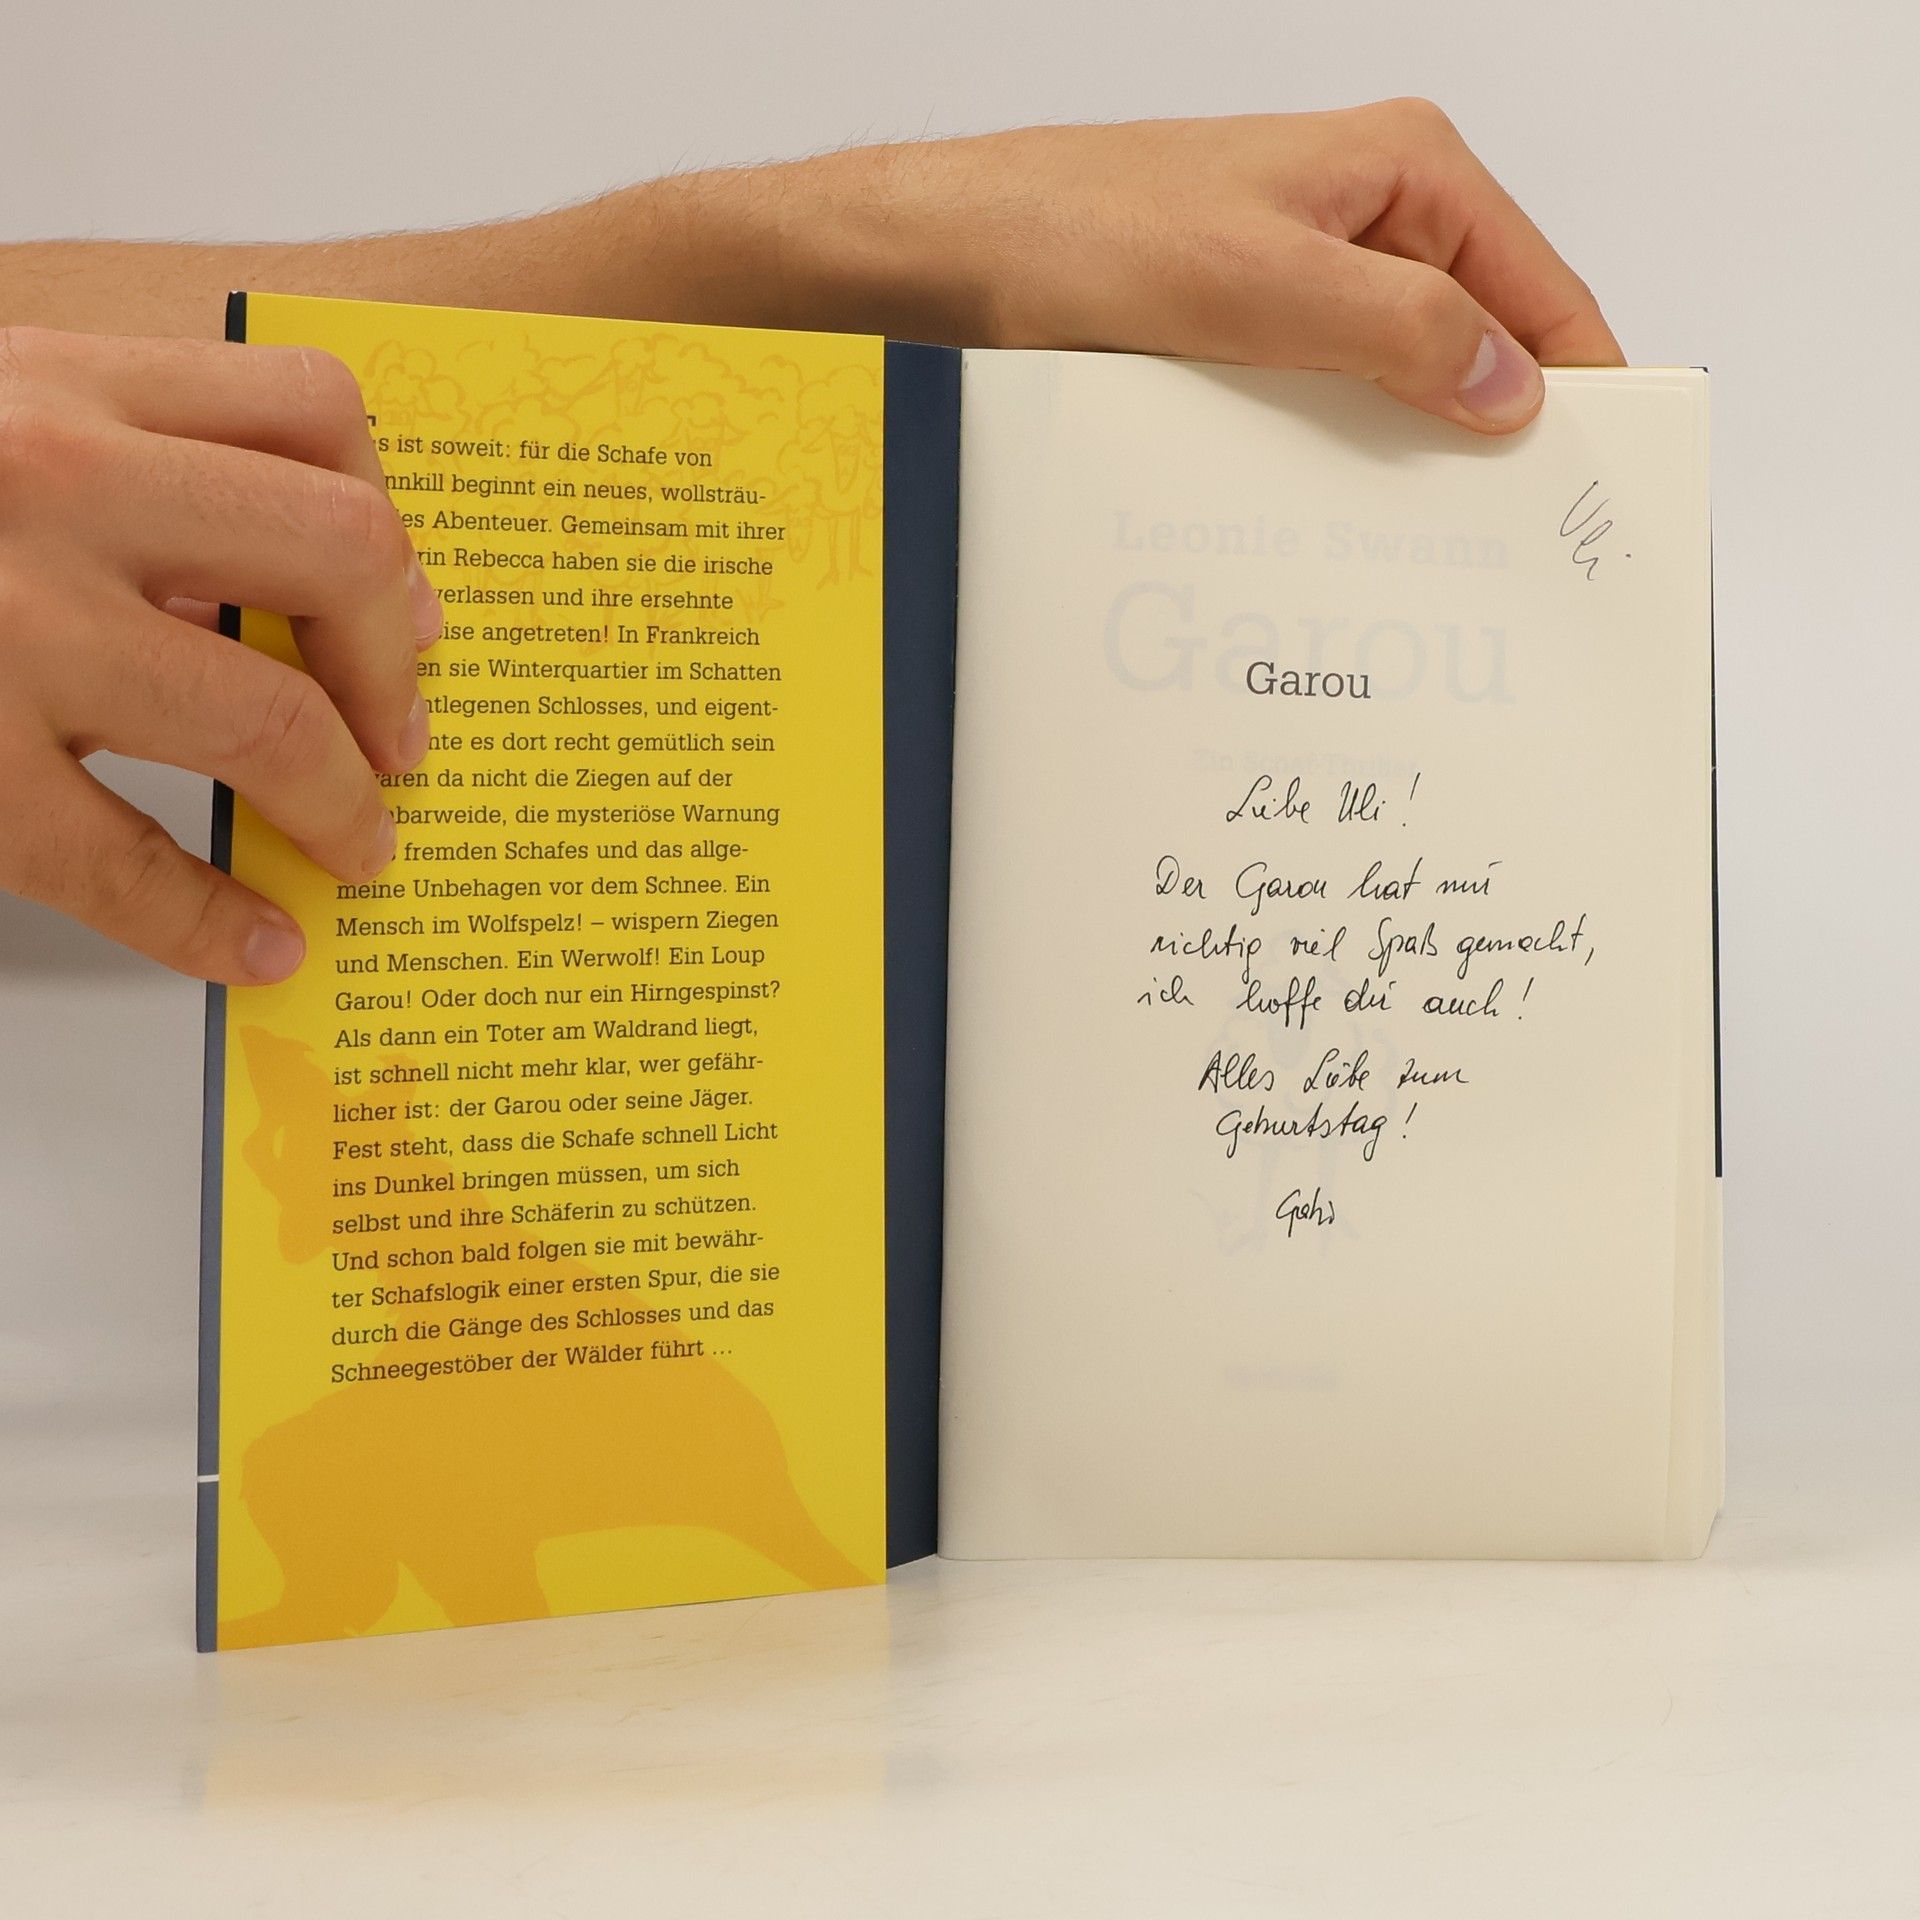 s ist soweit: für die Schafe von
nnkill beginnt ein neues, wollsträu-
es Abenteuer. Gemeinsam mit ihrer
rin Rebecca haben sie die irische
verlassen und ihre ersehnte
ise angetreten! In Frankreich
en sie Winterquartier im Schatten
ntlegenen Schlosses, und eigent-
nte es dort recht gemütlich sein
waren da nicht die Ziegen auf der
barweide, die mysteriöse Warnung
fremden Schafes und das allge-
meine Unbehagen vor dem Schnee. Ein
Mensch im Wolfspelz! – wispern Ziegen
und Menschen. Ein Werwolf! Ein Loup
Garou! Oder doch nur ein Hirngespinst?
Als dann ein Toter am Waldrand liegt,
ist schnell nicht mehr klar, wer gefähr-
licher ist: der Garou oder seine Jäger.
Fest steht, dass die Schafe schnell Licht
ins Dunkel bringen müssen, um sich
selbst und ihre Schäferin zu schützen.
Und schon bald folgen sie mit bewähr-
ter Schafslogik einer ersten Spur, die sie
durch die Gänge des Schlosses und das
Schneegestöber der Wälder führt ...
Uli
Leonie Swann
Garou
Garou
Ein Schaf-Thriller
Liebe Uli!
Der Garou hat mir
richtig viel Spaß gemacht,
ich hoffe dir auch!
Alles Liebe zum
Geburtstag!